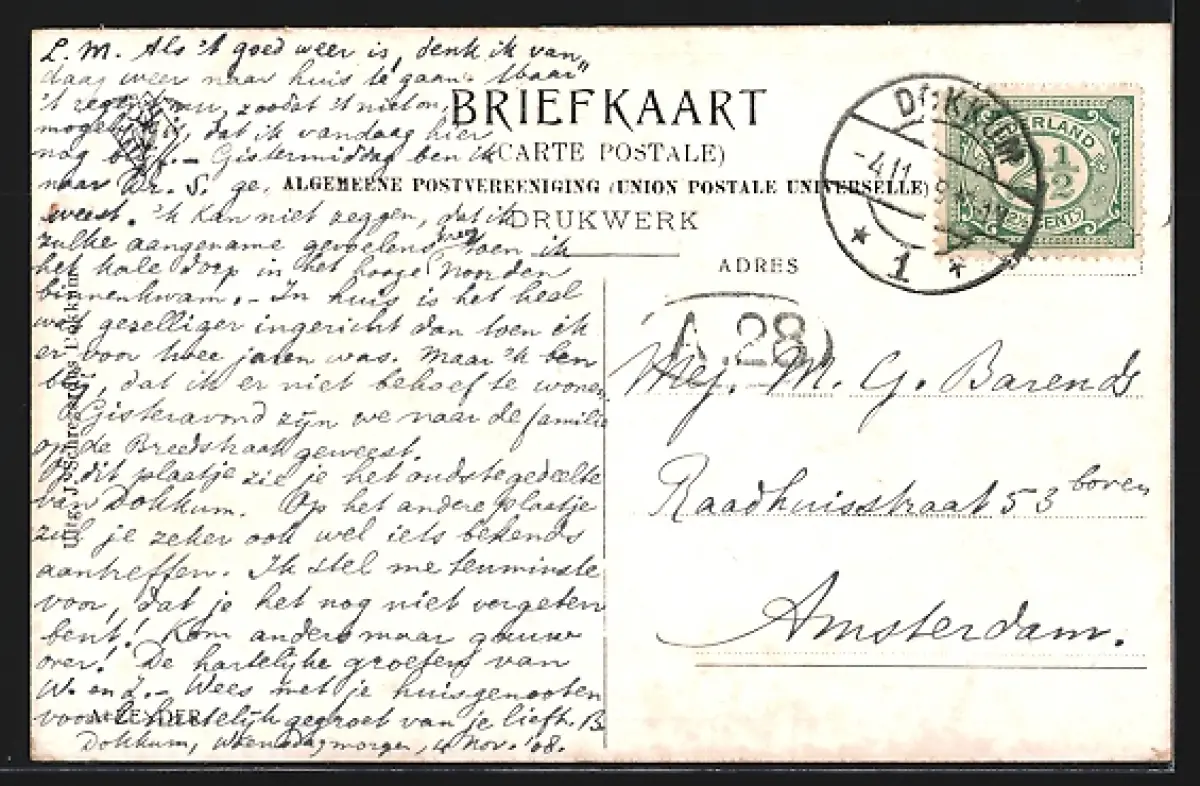 L. M. Als 't goed weer is, denk ik van„
daag weer naar huis te gaan. Maar
't regent nu, zoodat 't niet on„
mogelijk is, dat ik vandaag hier
nog blijf. – Gistermiddag ben ik
naar Dr. S. ge„
weest. 'k Kan niet zeggen, dat ik
zulke aangename gevoelens kreeg toen ik
het kale dorp in het hooge Noorden
binnenkwam. – In huis is het heel
wat gezelliger ingericht dan toen ik
er voor twee jaren was. Maar 'k ben
blij, dat ik er niet behoef te wonen.
Gisteravond zijn we naar de familie
op de Breedstraat geweest.
Op dit plaatje zie je het oudste gedeelte
van Dokkum. Op het andere plaatje
zul je zeker ook wel iets bekends
aantreffen. Ik stel me tenminste
voor, dat je het nog niet vergeten
bent! Kom anders maar gauw
over! De hartelijke groeten van
W. en J. – Wees met je huisgenooten
vooral hartelijk gegroet van je liefh. B.
Dokkum, Woensdagmorgen, 4 Nov. '08.
BRIEFKAART
(CARTE POSTALE)
ALGEMEENE POSTVEREENIGING (UNION POSTALE UNIVERSELLE)
DRUKWERK
ADRES
DOKKUM
-4/11
1
NEDERLAND
1/2
CENT
A 28
Mej. M. G. Barends
Raadhuisstraat 53 boven
Amsterdam.
AFZENDER